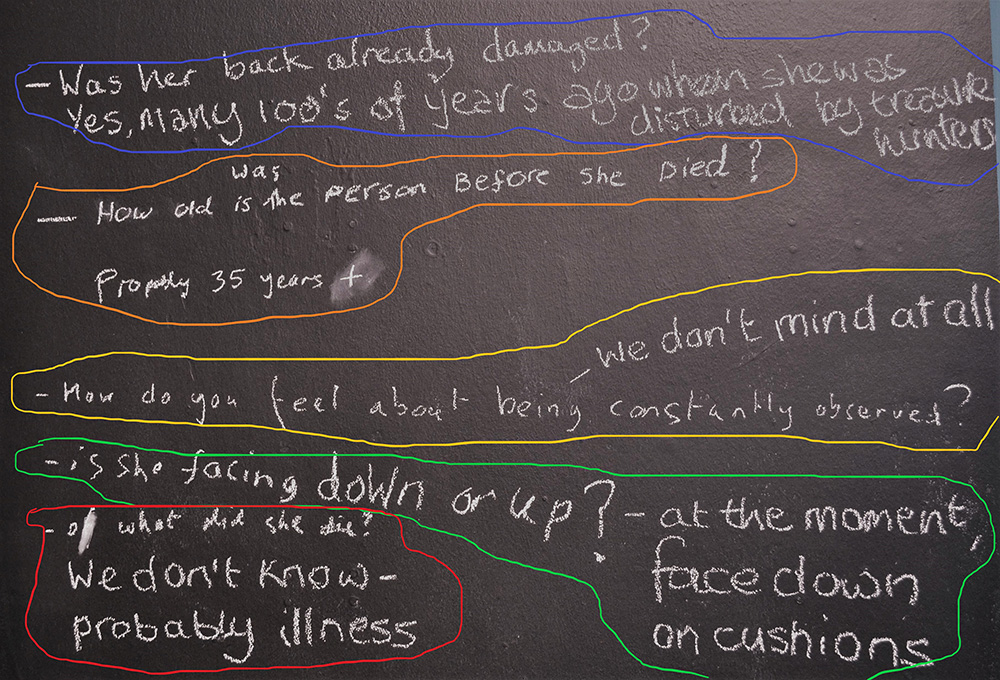 - Was her back already damaged?
Yes, many 100's of years ago whom she was
disturbed by treasure
hunters
was
- How old is the person Before she Died?
Propably 35 years +
- we don't mind at all
- How do you feel about being constantly observed?
- is she facing down or up? - at the moment,
face down
on cushions
- of what did she die?
We don't know -
probably illness